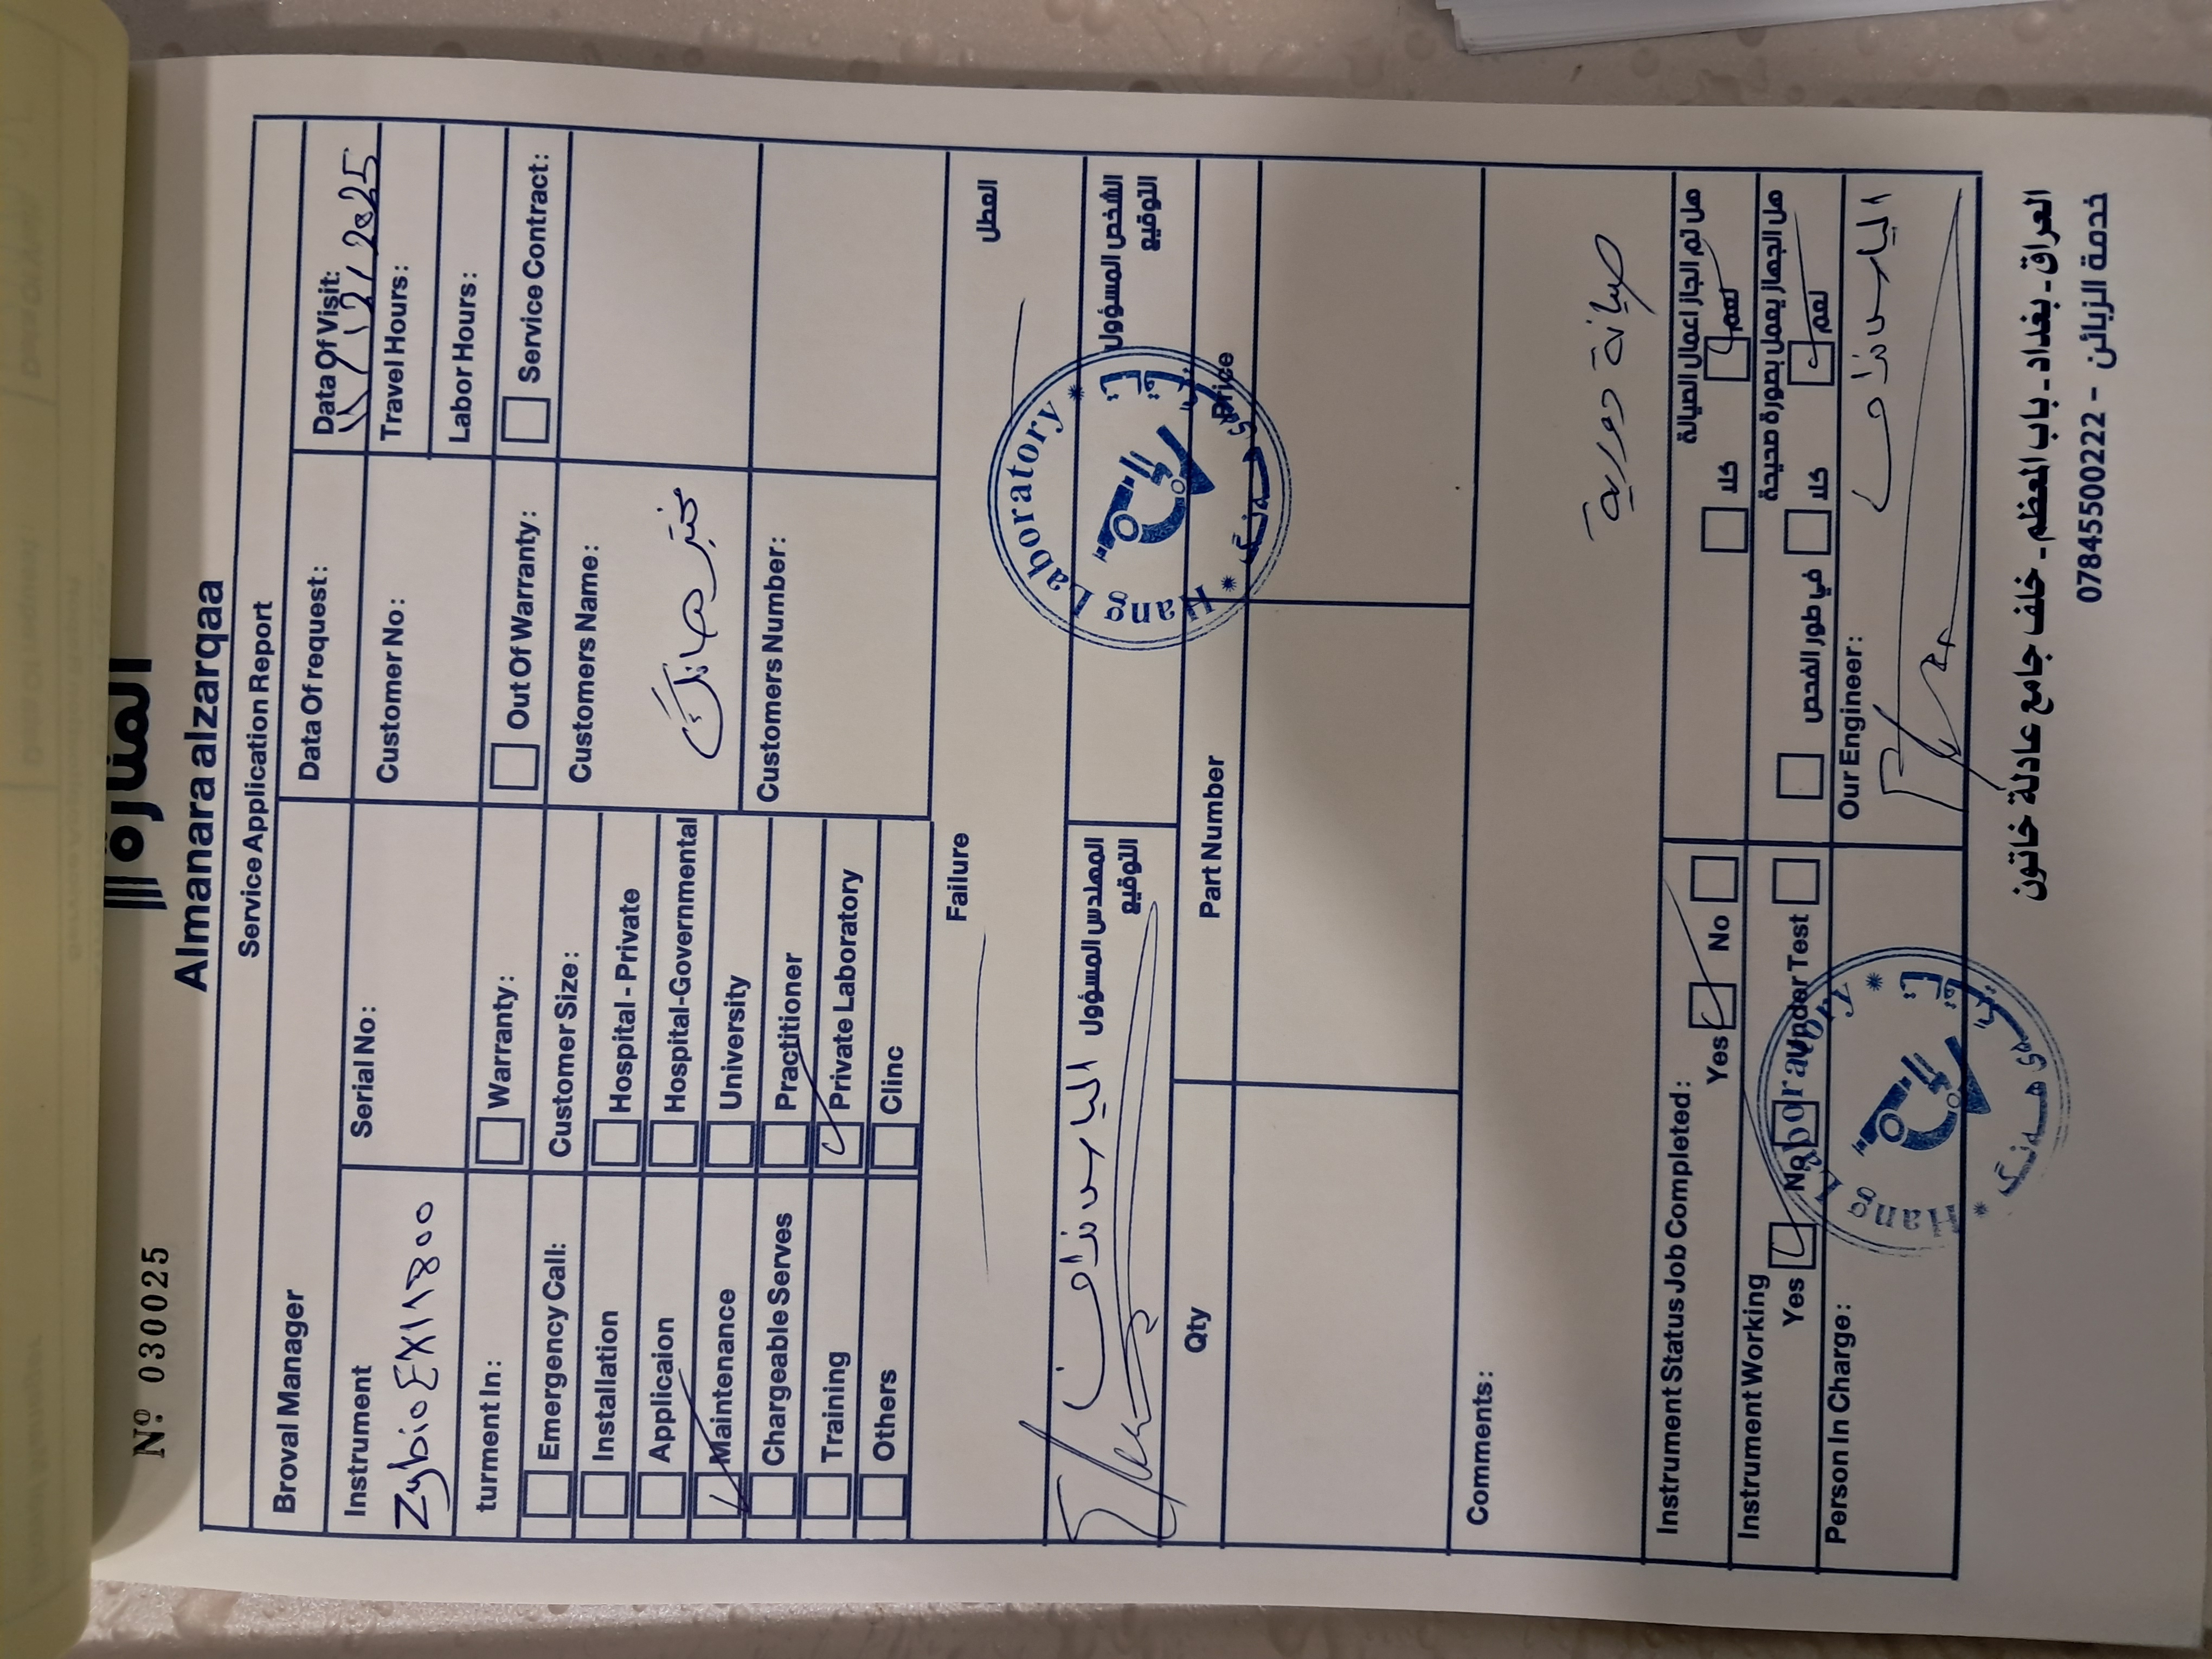 المنارة
Almanara alzarqaa
Nº: 030025
Service Application Report
Broval Manager
Data Of request:
Data Of Visit:
11/12/2025
Instrument
Zybio EX1800
Serial No:
Customer No:
Travel Hours:
Labor Hours:
turment In:
Warranty:
Out Of Warranty:
Service Contract:
Emergency Call:
Installation
Applicaion
Maintenance
Chargeable Serves
Training
Others
Customer Size:
Hospital - Private
Hospital-Governmental
University
Practitioner
Private Laboratory
Clinc
Customers Name:
مختبر هانك
Customers Number:
Failure
العطل
المهندس المسؤول
التوقيع
الشخص المسؤول
التوقيع
Hang Laboratory
Qty
Part Number
Price
Comments:
صيانة دورية
Instrument Status Job Completed:
Yes No
هل تم انجاز اعمال الصيانة
نعم كلا
Instrument Working
Yes No Under Test
هل الجهاز يعمل بصورة صحيحة
نعم كلا في طور الفحص
Person In Charge:
Hang Laboratory
Our Engineer:
العراق - بغداد - باب المعظم - خلف جامع عادلة خاتون
خدمة الزبائن - 07845500222